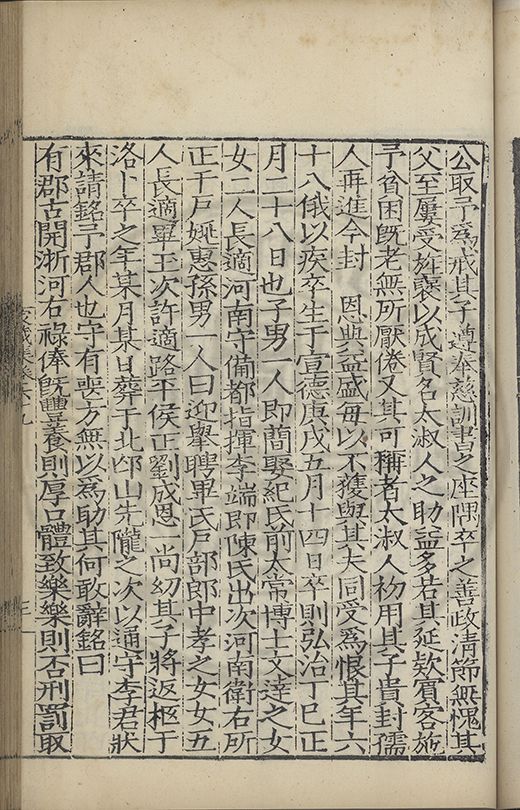 公取予爲戒其子遵奉慈訓書之座隅卒之善政清節無愧其
父至屢受旌褒以成賢名太淑人之助益多若其延欵賓客施
予貧困旣老無所厭倦又其可稱者太淑人初用其子貴封孺
人再進今封 恩典益盛毎以不獲與其夫同受爲恨其年六
十八俄以疾卒生于宣德庚戌五月十四日卒則弘治丁巳正
月二十八日也子男一人即蕳娶紀氏前太常博士文逹之女
女二人長適河南守備都指揮李端即陳氏出次河南衛右所
正千戸姚惠孫男一人曰迎舉聘畢氏戸部郎中孝之女女五
人長適畢玉次許適路平侯正劉成恩一尚幼其子將返柩于
洛卜卒之年某月某日葬于北邙山先隴之次以通守李君狀
來請銘予郡人也守有喪方無以爲助其何敢辭銘曰
有郡古開浙河右祿俸旣豐養則厚口體致樂樂則否刑罰取